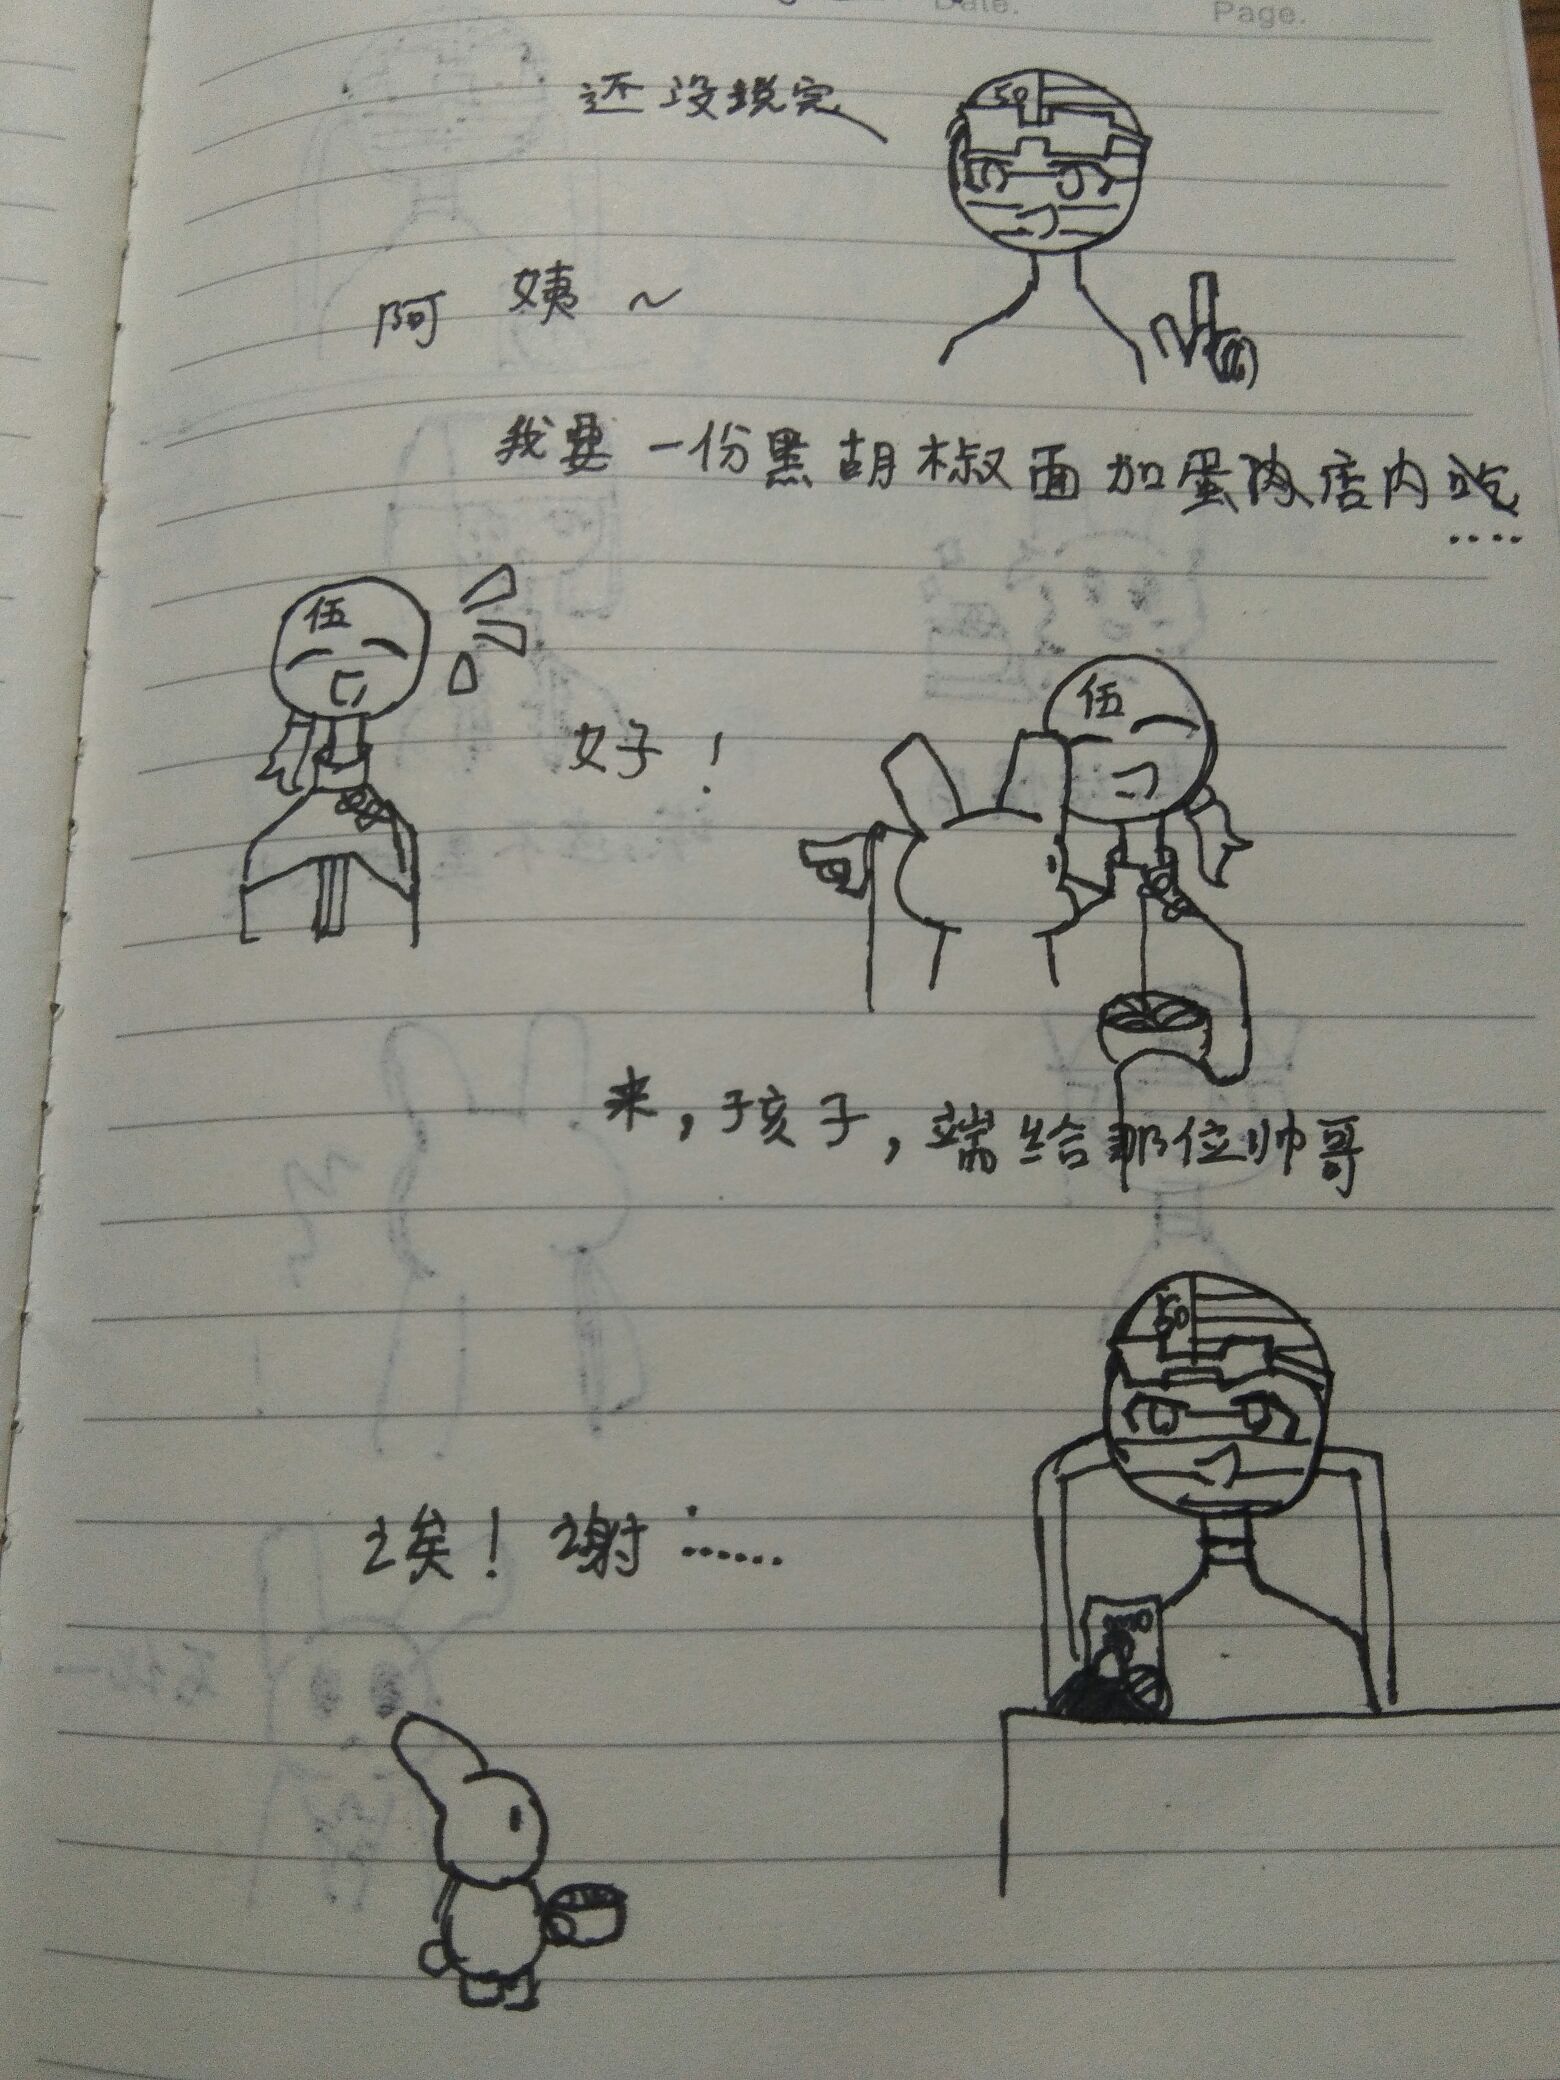 Date.
Page.
还没说完
50
阿姨～
我要一份黑胡椒面加蛋肉店内吃
····
伍
好！
伍
来，孩子，端给那位帅哥
50
诶！谢······